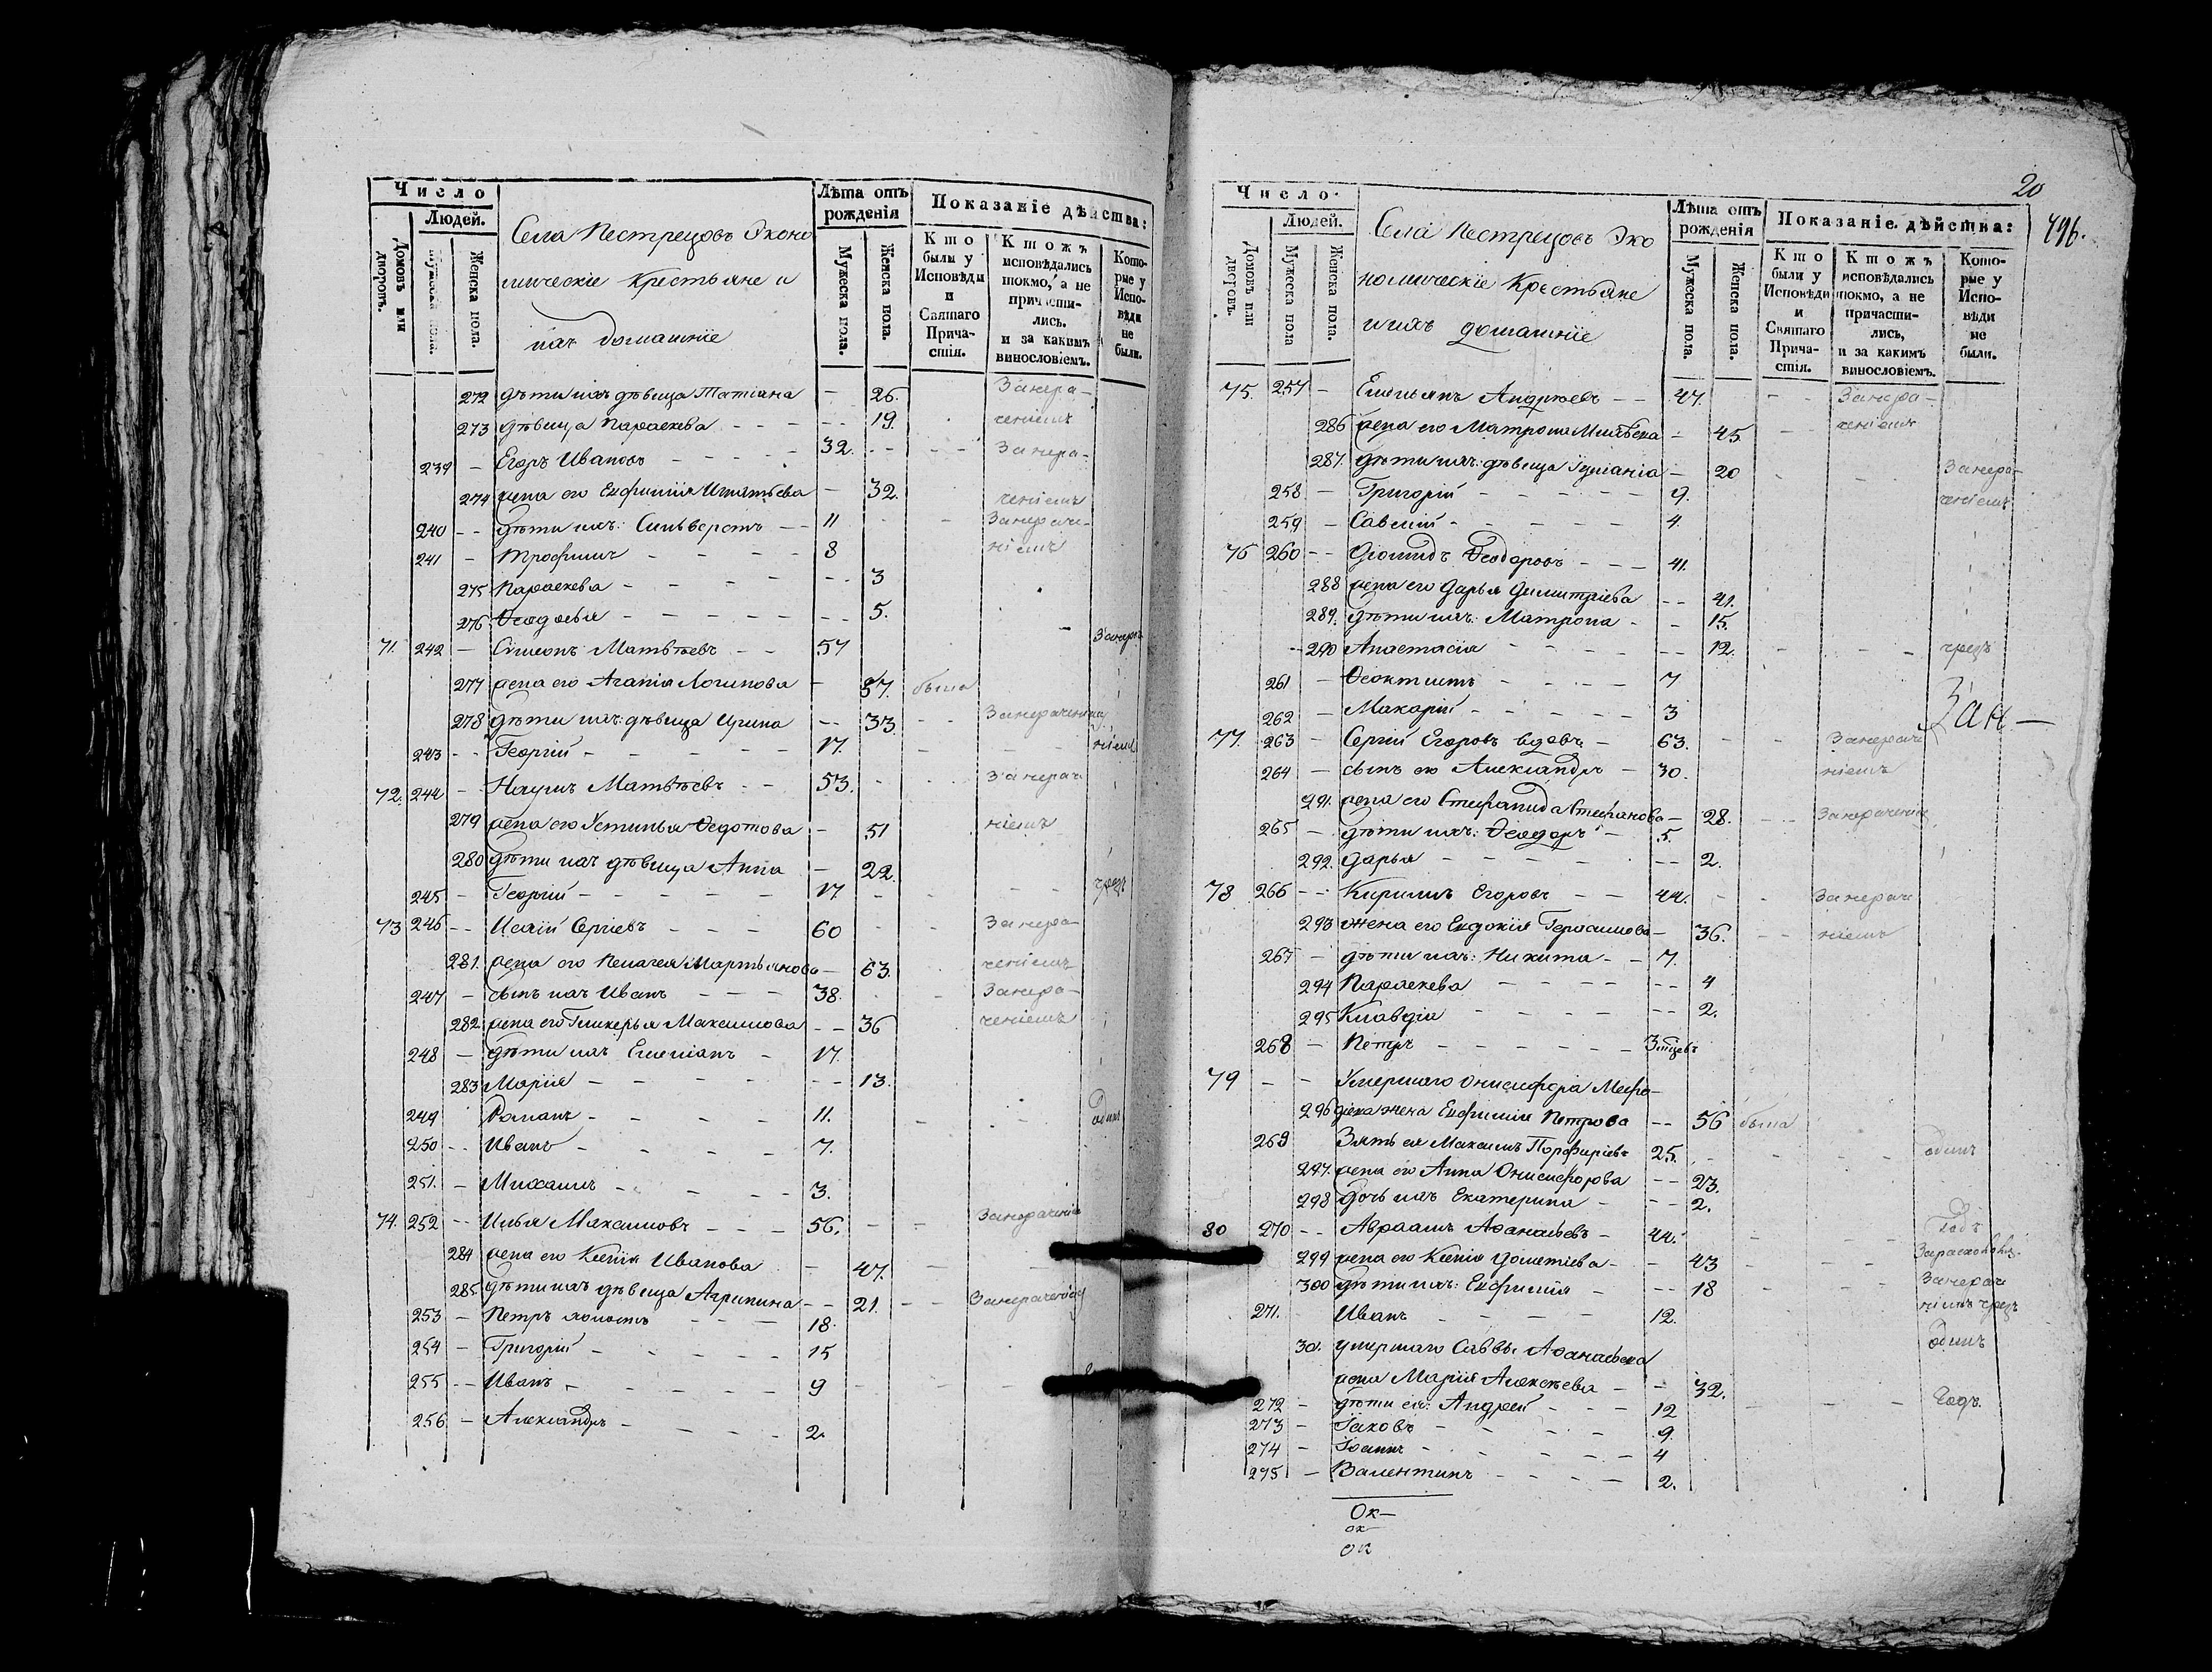 Число
Людей.
Домовъ или дворовъ.
Мужеска пола.
Женска пола.
Села Пестрецовъ Эконо
мическіе Крестьяне и
ихъ домашніе
Лѣта отъ рожденія
Мужеска пола.
Женска пола.
Показаніе дѣйства:
Кто были у Исповѣди и Святаго Причастія.
Ктожъ исповѣдались токмо, а не причастились. и за какимъ винословіемъ.
Которые у Исповѣди не были.
272 дѣти ихъ дѣвица Татіана — 26. Занера-
273 дѣвица Параскева - - - 19. ченіемъ
239 — Егоръ Ивановъ - - - 32. Занера-
274 жена его Евфимія Игнатьева — 32. ченіемъ
240 - - дѣти ихъ: Сильверстъ — 11 Занераче-
241 — Трофимъ - - - 8 ніемъ
275 Параскева - - - 3
276 Ѳеодосья - - - 5.
71. 242 — Сімеонъ Матвѣевъ - - 57
277 жена его Агапія Логинова — 57. была
278 дѣти ихъ: дѣвица Ирина - - 33. Занераченіемъ
243 - - Георгій - - - 17. ніемъ
72. 244 — Наумъ Матвѣевъ - - 53. Занерач
279 жена его Устинья Ѳедотова — 51 ніемъ
280 дѣти ихъ дѣвица Анна — 22.
245 — Георгій - - - 17. чрезъ
73 246 - - Исаій Сергіевъ - - - 60 Занера-
281. жена его Пелагея Мартьянова — 63. ченіемъ
247 — сынъ ихъ Иванъ - - - 38. Занера-
282. жена его Гликерья Максимова - - 36 ченіемъ
248 — дѣти ихъ Емеліанъ - 17.
283 Марія - - - 13.
249 Романъ - - - 11. одинъ
250 - - Иванъ - - - 7.
251. — Михаилъ - - - 3.
74. 252 - - Илья Максимовъ - - - 56. Занераченіе
284 жена его Ксенія Иванова — 47.
285. дѣти ихъ дѣвица Агрипина - - 21. Занераченіе
253 — Петръ - - - 18.
254 — Григорій - - - 15
255 - - Иванъ - - - 9
256 — Александръ - - - 2.
20
496.
Число
Людей.
Домовъ или дворовъ.
Мужеска пола
Женска пола.
Села Пестрецовъ Эко
номическіе Крестьяне
и ихъ домашніе
Лѣта отъ рожденія
Мужеска пола.
Женска пола.
Показаніе дѣйства:
Кто были у Исповѣди и Святаго Причастія.
Ктожъ исповѣдались токмо, а не причастились, и за какимъ винословіемъ.
Которые у Исповѣди не были.
75. 257 — Емельянъ Андреевъ - - 47. Занера-
286 жена его Матрона - 45. ченіемъ
287. дѣти ихъ: дѣвица Іуліанія - 20 Занера-
258 — Григорій - - - 9. ченіемъ
259 — Савелій - - - 4.
76 260 - - Діомидъ Ѳеодоровъ - - - 41.
288 жена его Дарья Димитріева - - 41.
289. дѣти ихъ: Матрона - - 15.
290 Анастасія - - - 12. чрезъ
261 — Ѳеоктистъ - - - 7
262 — Макарій - - - 3 Зан —
77. 263 — Сергій Егоровъ вдовъ — 63. Занерач
264 — сынъ его Александръ — 30. ніемъ
291. жена его Стефанида Стефанова — 28. Занераченіе
265 — дѣти ихъ: Ѳеодоръ - 5.
292. Дарья - - - 2.
78 266 - - Кириллъ Егоровъ - - 44. Занерач
293 жена его Евдокія Герасимова — 36. ніемъ
267 — дѣти ихъ: Никита - - 7.
294 Параскева - - - 4
295 Клавдія - - - 2.
268 — Петръ - - - 3 мцовъ
79 - - Умершаго Онисифора Мефо-
296 діева жена Евфимія Петрова - - 56 была
269 Зять ея Максимъ Порфиріевъ 25. одинъ
297. жена его Анна Онисифорова - - 23.
298 Дочь ихъ Екатерина - - - 2.
80 270 - - Авраамъ Аѳанасьевъ - 44. Годъ
299 жена его Ксенія Дометіева - - 43
300 дѣти ихъ: Евфимія - - - 18 Занерач
271. Иванъ - - - 12. ніемъ чрезъ
301. умершаго Саввы Аѳанасьева одинъ
жена Марія Алексѣева - - 32.
272 — дѣти ея: Андрей - - - 12 Годъ.
273 — Іаковъ - - - 9.
274 — Іоаннъ - - - 4
275 — Валентинъ - - - 2.
Ок—
ок
ок